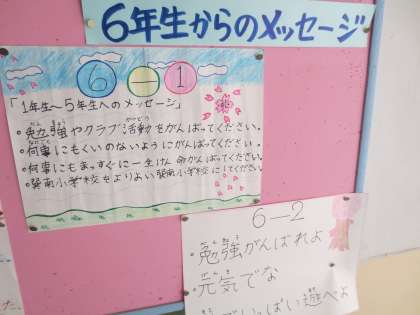 6年生からのメッセージ
6－1
「1年生～5年生へのメッセージ」
・勉強やクラブ活動をがんばってください。
・何事にもくいのないようにがんばってください。
・何事にもまっすぐに一生けん命がんばってください。
南小学校をよりよい 南小学校にしてください。
6－2
・勉強がんばれよ
・元気でな
いっぱい遊べよ